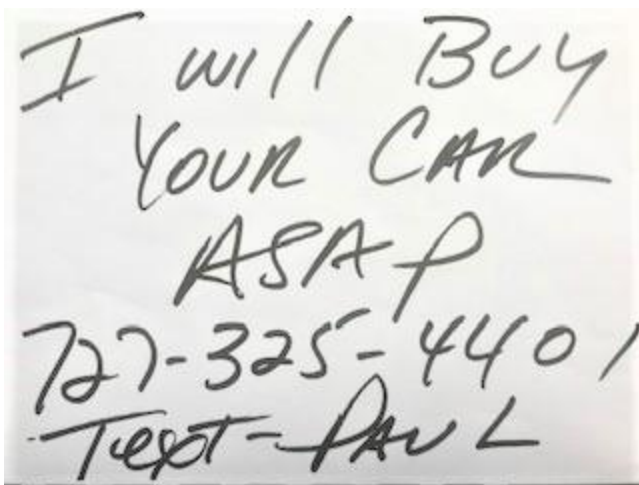 I will Buy
YOUR CAR
ASAP
727-325-4401
Text-PAUL